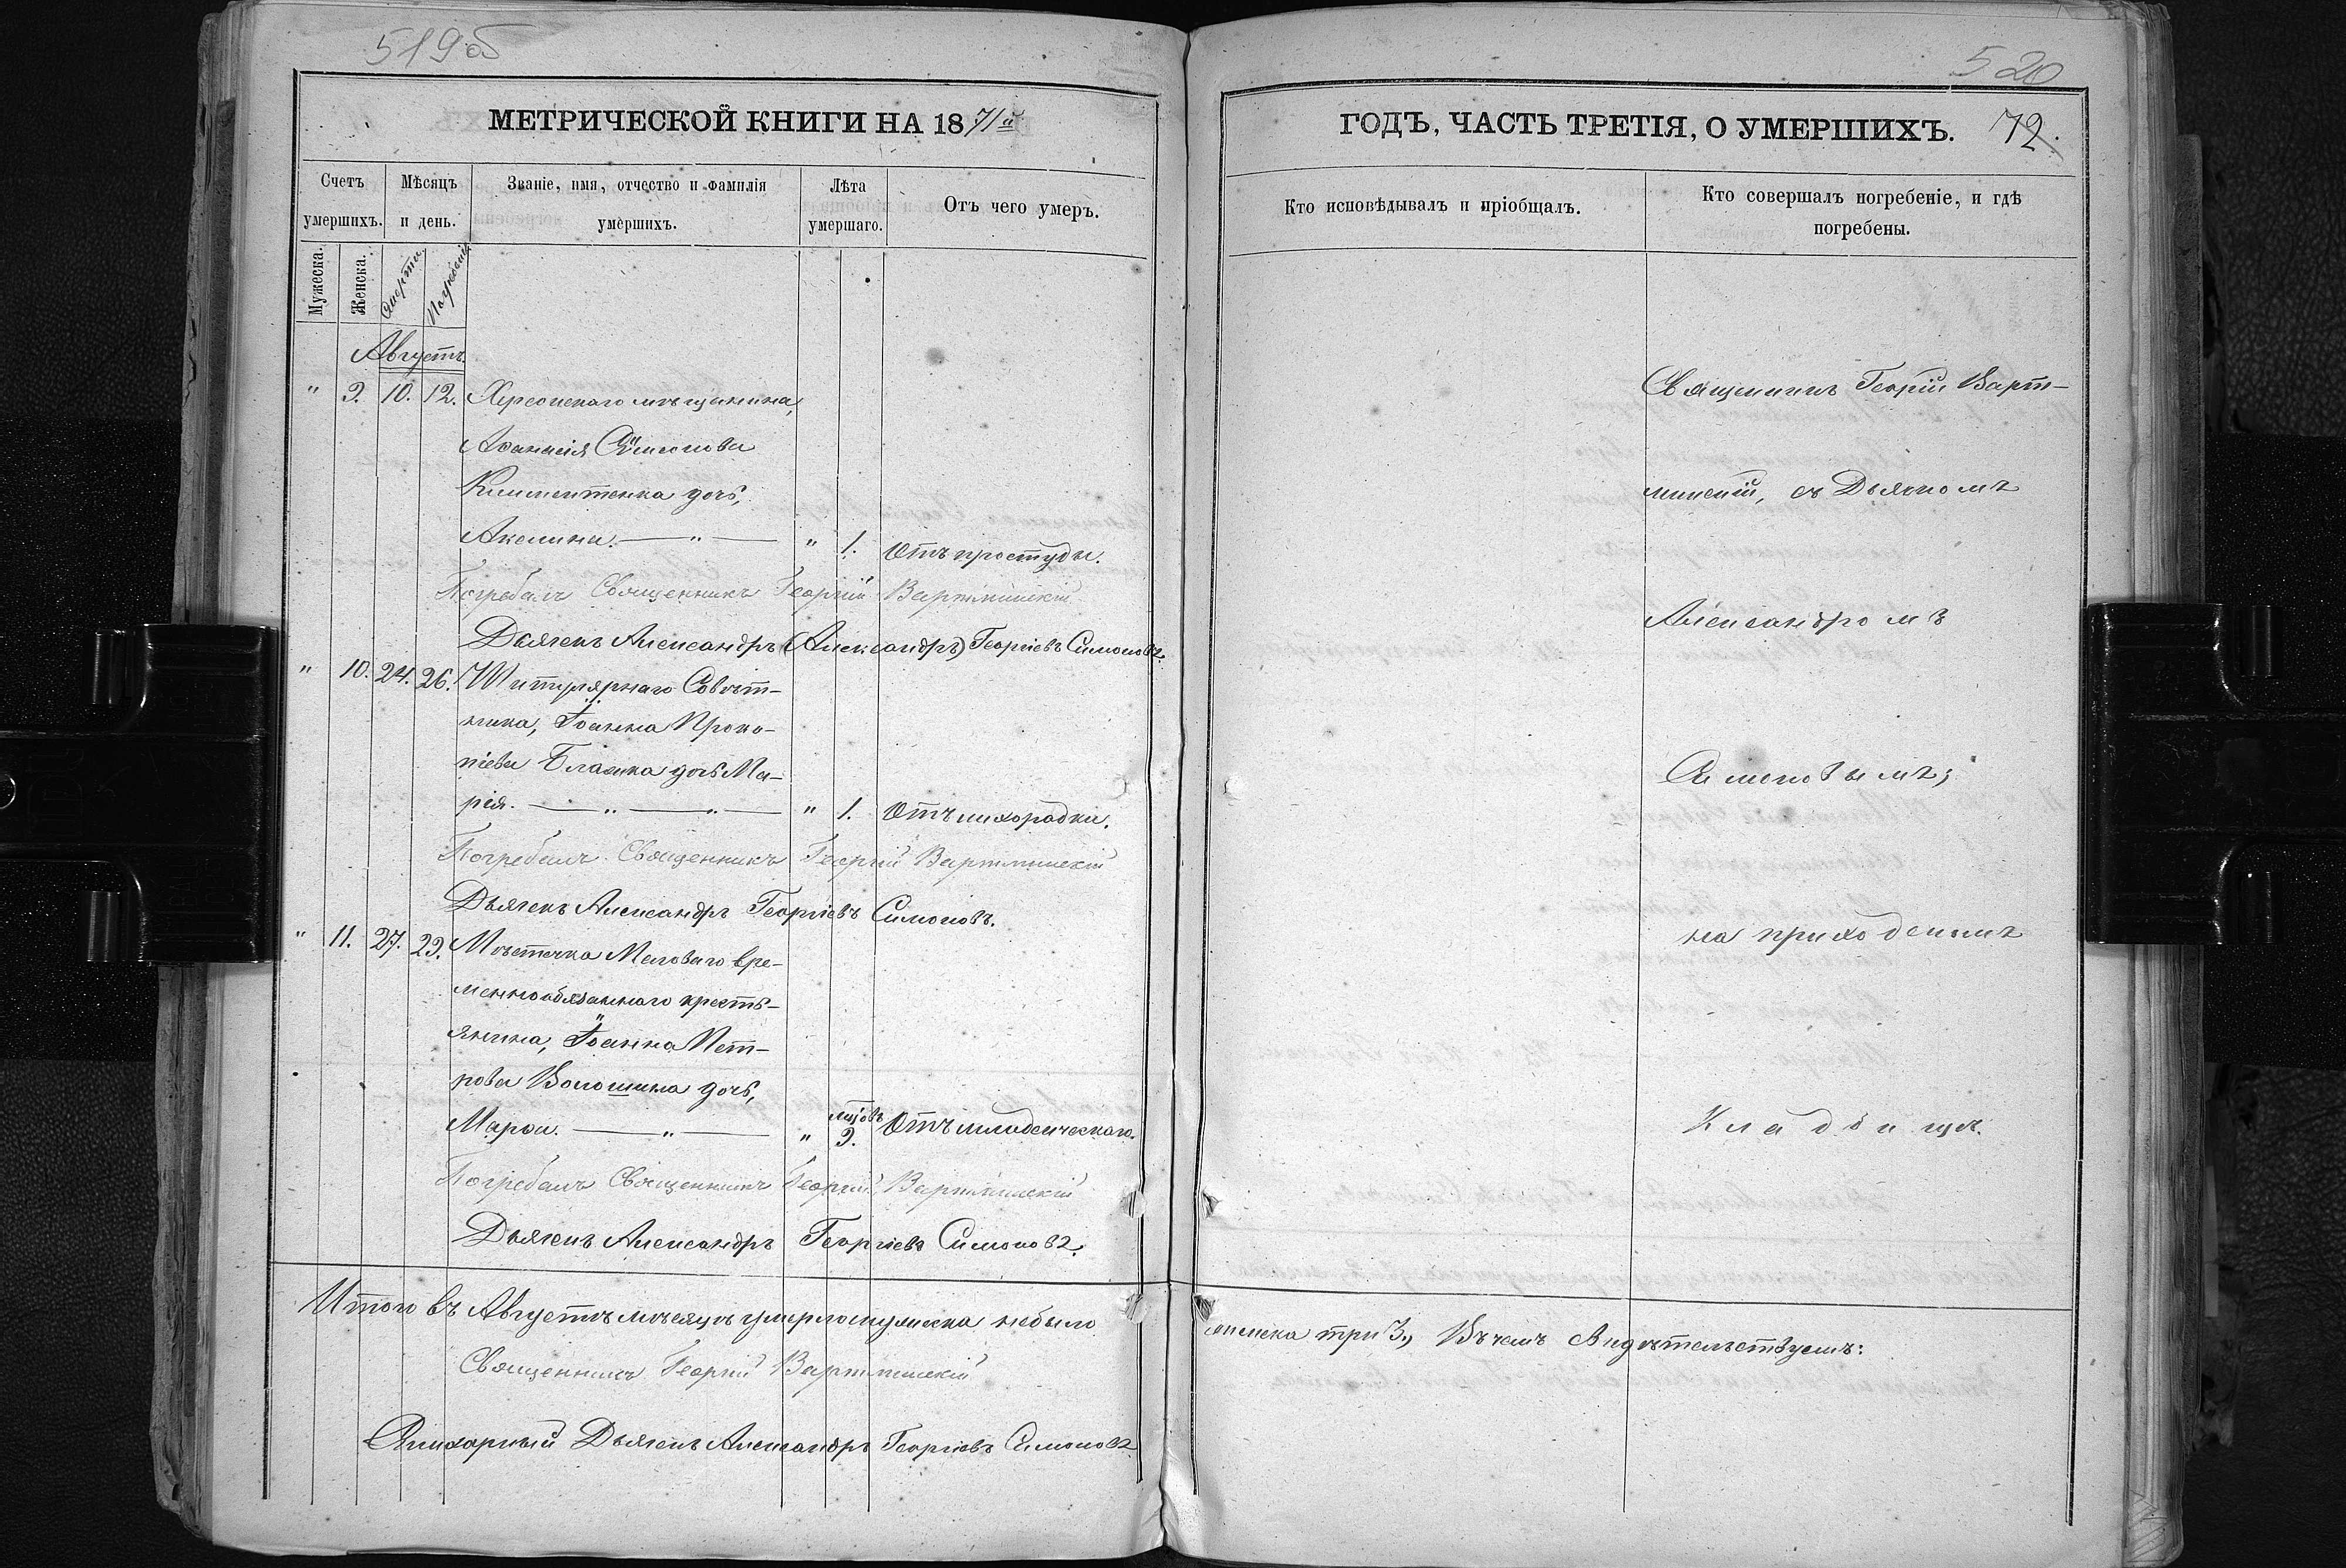 519об
МЕТРИЧЕСКОЙ КНИГИ НА 1871й
Счетъ умершихъ.
Мѣсяцъ и день.
Званіе, имя, отчество и фамилія умершихъ.
Лѣта умершаго.
Отъ чего умеръ.
Мужеска.
Женска.
Смерти.
Погребенія
Августъ.
" 9. 10. 12. Херсонскаго мѣщанина,
Аѳанасія Симонова
Климентенка дочь,
Акелина. — " — " 1. Отъ простуды.
Погребалъ Священникъ Георгій Вартминскій
Дьячекъ Александръ (Александръ) Георгіевъ Симоновъ.
" 10. 24. 26. Титулярнаго Совѣт-
ника, Іоанна Проко-
піева Блашка дочь Ма-
рія. — " — " — " 1. Отъ лихорадки.
Погребалъ Священникъ Георгій Вартминскій
Дьячекъ Александръ Георгіевъ Симоновъ.
" 11. 27. 29. Мѣстечка Меловаго вре-
менно обязаннаго кресть-
янина, Іоанна Пет-
рова Волошина дочь,
Марѳа. — " — " 9. мцовъ Отъ младенческаго.
Погребалъ Священникъ Георгій Вартминскій
Дьячекъ Александръ Георгіевъ Симоновъ.
Итого въ Августѣ мѣсяцѣ умерло мужеска небыло
Священникъ Георгій Вартминскій
Дьячекъ Александръ Георгіевъ Симоновъ
520
ГОДЪ, ЧАСТЬ ТРЕТІЯ, О УМЕРШИХЪ. 72.
Кто исповѣдывалъ и пріобщалъ.
Кто совершалъ погребеніе, и гдѣ погребены.
Священникъ Георгій Варт-
минскій, съ Дьячкомъ
Александромъ
Симоновымъ;
на приходскомъ
Кладбищѣ.
женска три 3., Въ чемъ свидѣтельствуемъ: